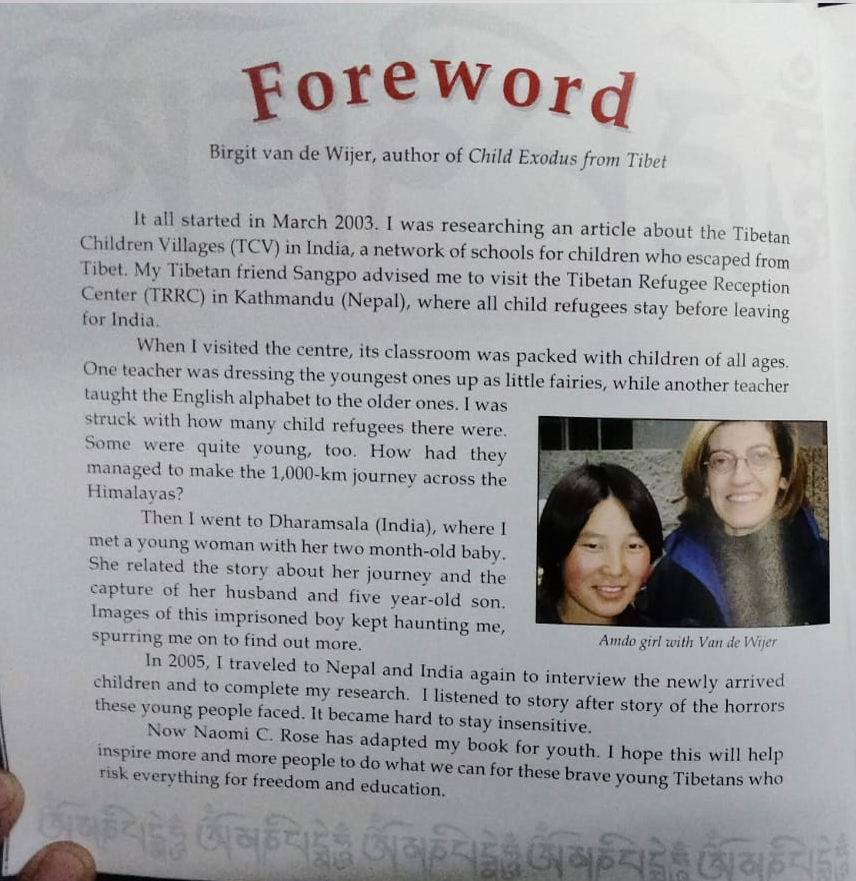 Foreword
Birgit van de Wijer, author of Child Exodus from Tibet
It all started in March 2003. I was researching an article about the Tibetan
Children Villages (TCV) in India, a network of schools for children who escaped from
Tibet. My Tibetan friend Sangpo advised me to visit the Tibetan Refugee Reception
Center (TRRC) in Kathmandu (Nepal), where all child refugees stay before leaving
for India.
When I visited the centre, its classroom was packed with children of all ages.
One teacher was dressing the youngest ones up as little fairies, while another teacher
taught the English alphabet to the older ones. I was
struck with how many child refugees there were.
Some were quite young, too. How had they
managed to make the 1,000-km journey across the
Himalayas?
Then I went to Dharamsala (India), where I
met a young woman with her two month-old baby.
She related the story about her journey and the
capture of her husband and five year-old son.
Images of this imprisoned boy kept haunting me,
spurring me on to find out more.
Amdo girl with Van de Wijer
In 2005, I traveled to Nepal and India again to interview the newly arrived
children and to complete my research. I listened to story after story of the horrors
these young people faced. It became hard to stay insensitive.
Now Naomi C. Rose has adapted my book for youth. I hope this will help
inspire more and more people to do what we can for these brave young Tibetans who
risk everything for freedom and education.